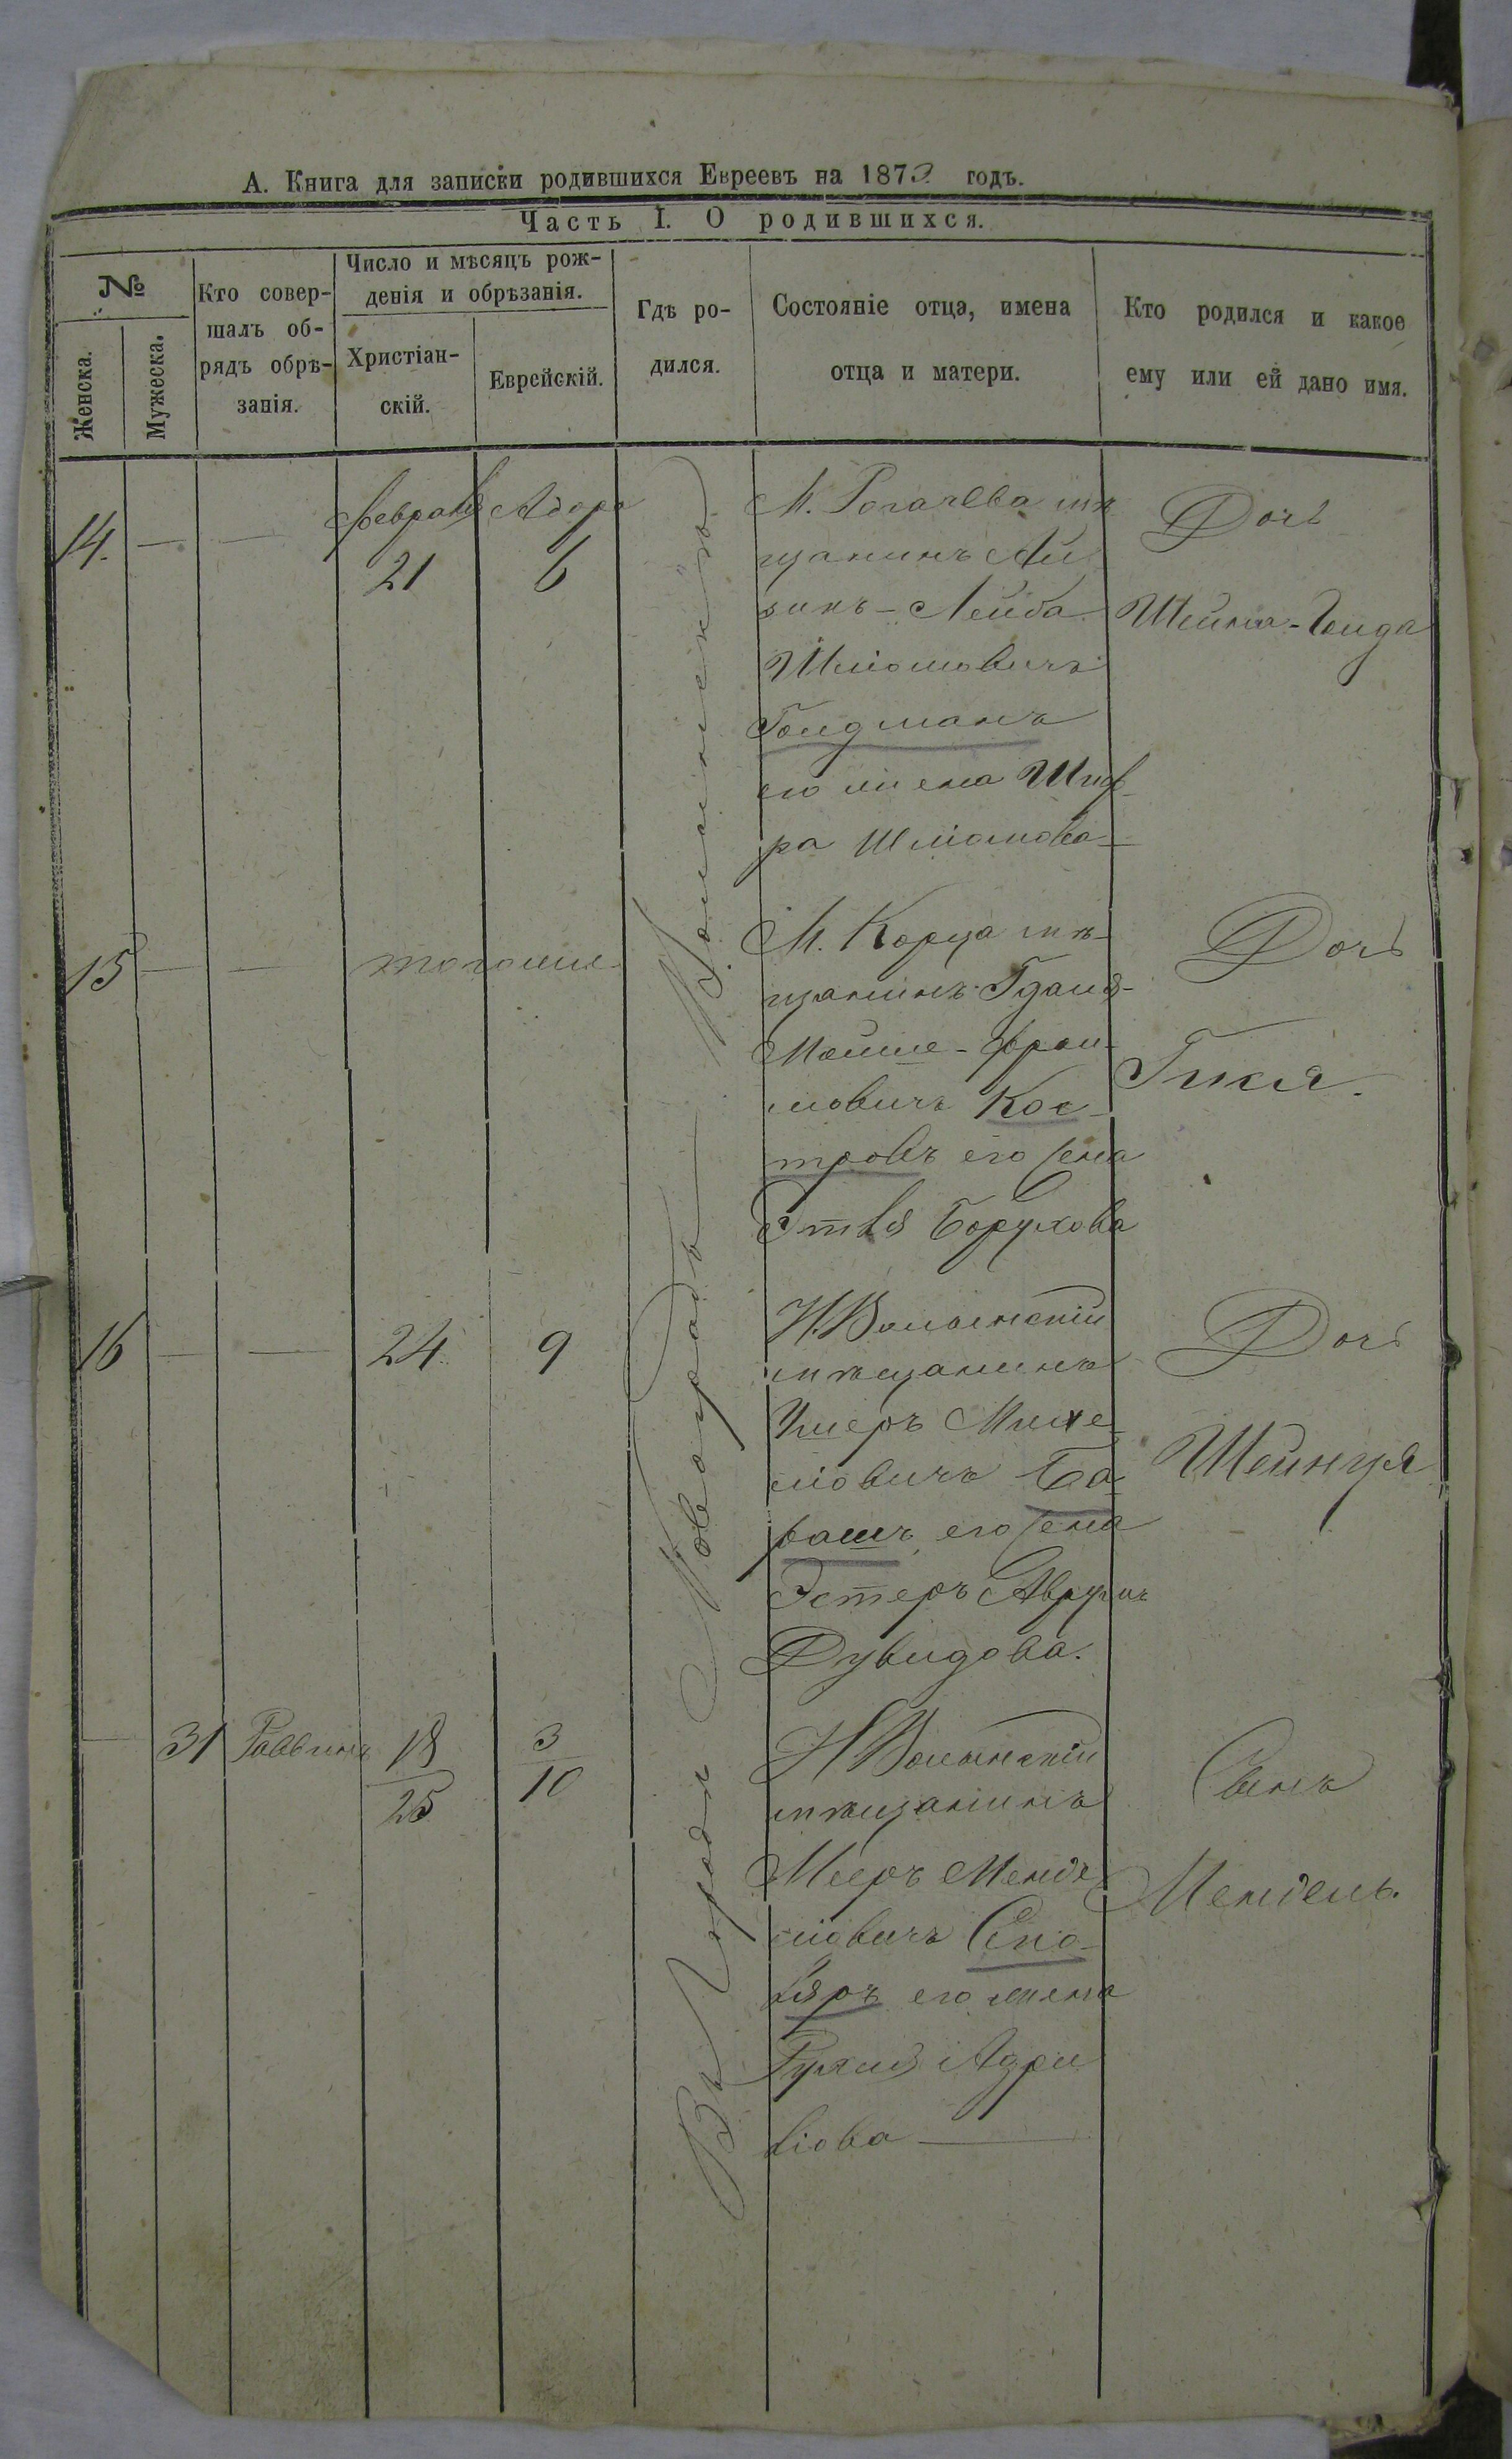 А. Книга для записки родившихся Евреевъ на 1873 годъ.
Часть I. О родившихся.
№
Женска.
Мужеска.
Кто совер-
шалъ об-
рядъ обрѣ-
занія.
Число и мѣсяцъ рож-
денія и обрѣзанія.
Христіан-
скій.
Еврейскій.
Гдѣ ро-
дился.
Состояніе отца, имена
отца и матери.
Кто родился и какое
ему или ей дано имя.
Въ Городѣ Новоградъ Волынскъ
14.
Февраля
21
Адара
6
М. Рогачева мѣ
щанинъ Ай
зикъ-Лейба
Шліомовичъ
Голдманъ
его жена Шиф
ра Шліомова
Дочь
Шейна-Голда
15
тогоже
М. Корца мѣ-
щанинъ Гдаля-
Мойше-Фрои-
мовичъ Кос-
тровъ его жена
Этля Борухова
Дочь
Гитля.
16
24
9
Н. Волынскій
мѣщанинъ
Ушеръ Михе-
ліовичъ Ба-
рашъ его жена
Эстеръ
Дувидова.
Дочь
Шейндля
31
Раввинъ
18
25
3
10
Н Волынскій
мѣщанинъ
Мееръ Менде
ліовичъ Сто-
ляръ его жена
Рухля Азри
ліова
Сынъ
Мендель.